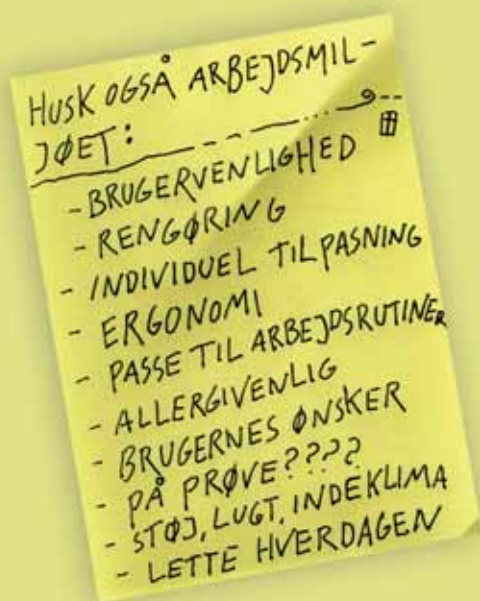 HUSK OGSÅ ARBEJDSMIL-
JØET:
- BRUGERVENLIGHED
- RENGØRING
- INDIVIDUEL TILPASNING
- ERGONOMI
- PASSE TIL ARBEJDSRUTINER
- ALLERGIVENLIG
- BRUGERNES ØNSKER
- PÅ PRØVE????
- STØJ, LUGT, INDEKLIMA
- LETTE HVERDAGEN